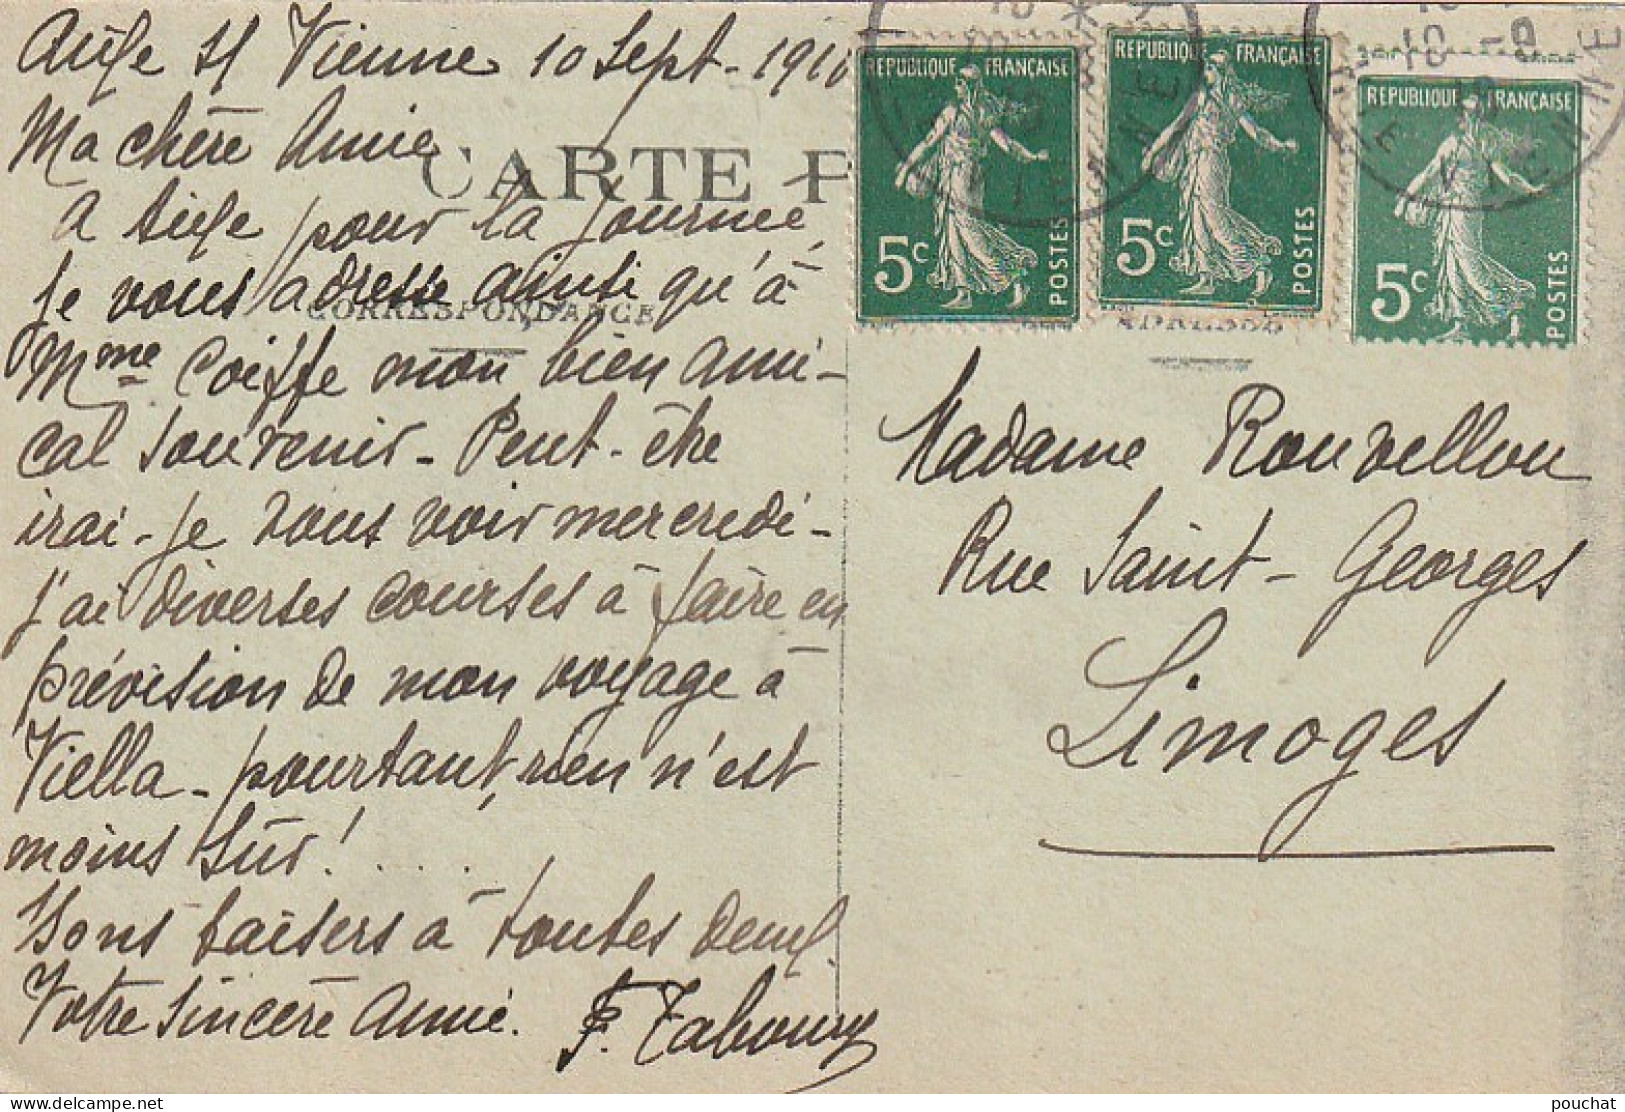 Aixe s/ Vienne 10 Sept - 1910
Ma chère Amie
CARTE P
A Aixe pour la journée,
je vous adresse ainsi qu'à
CORRESPONDANCE
Mme Coiffe mon bien ami-
cal souvenir - Peut-être
irai-je vous voir mercredi -
j'ai diverses courses à faire en
prévision de mon voyage à
Viella - pourtant, rien n'est
moins sûr! ....
Bons baisers à toutes deux.
Votre sincère amie.
F. Taboury
REPUBLIQUE FRANÇAISE
5c POSTES
REPUBLIQUE FRANÇAISE
5c POSTES
REPUBLIQUE FRANÇAISE
5c POSTES
ADRESSE
Madame Rouvellou
Rue Saint-Georges
Limoges
pouchat